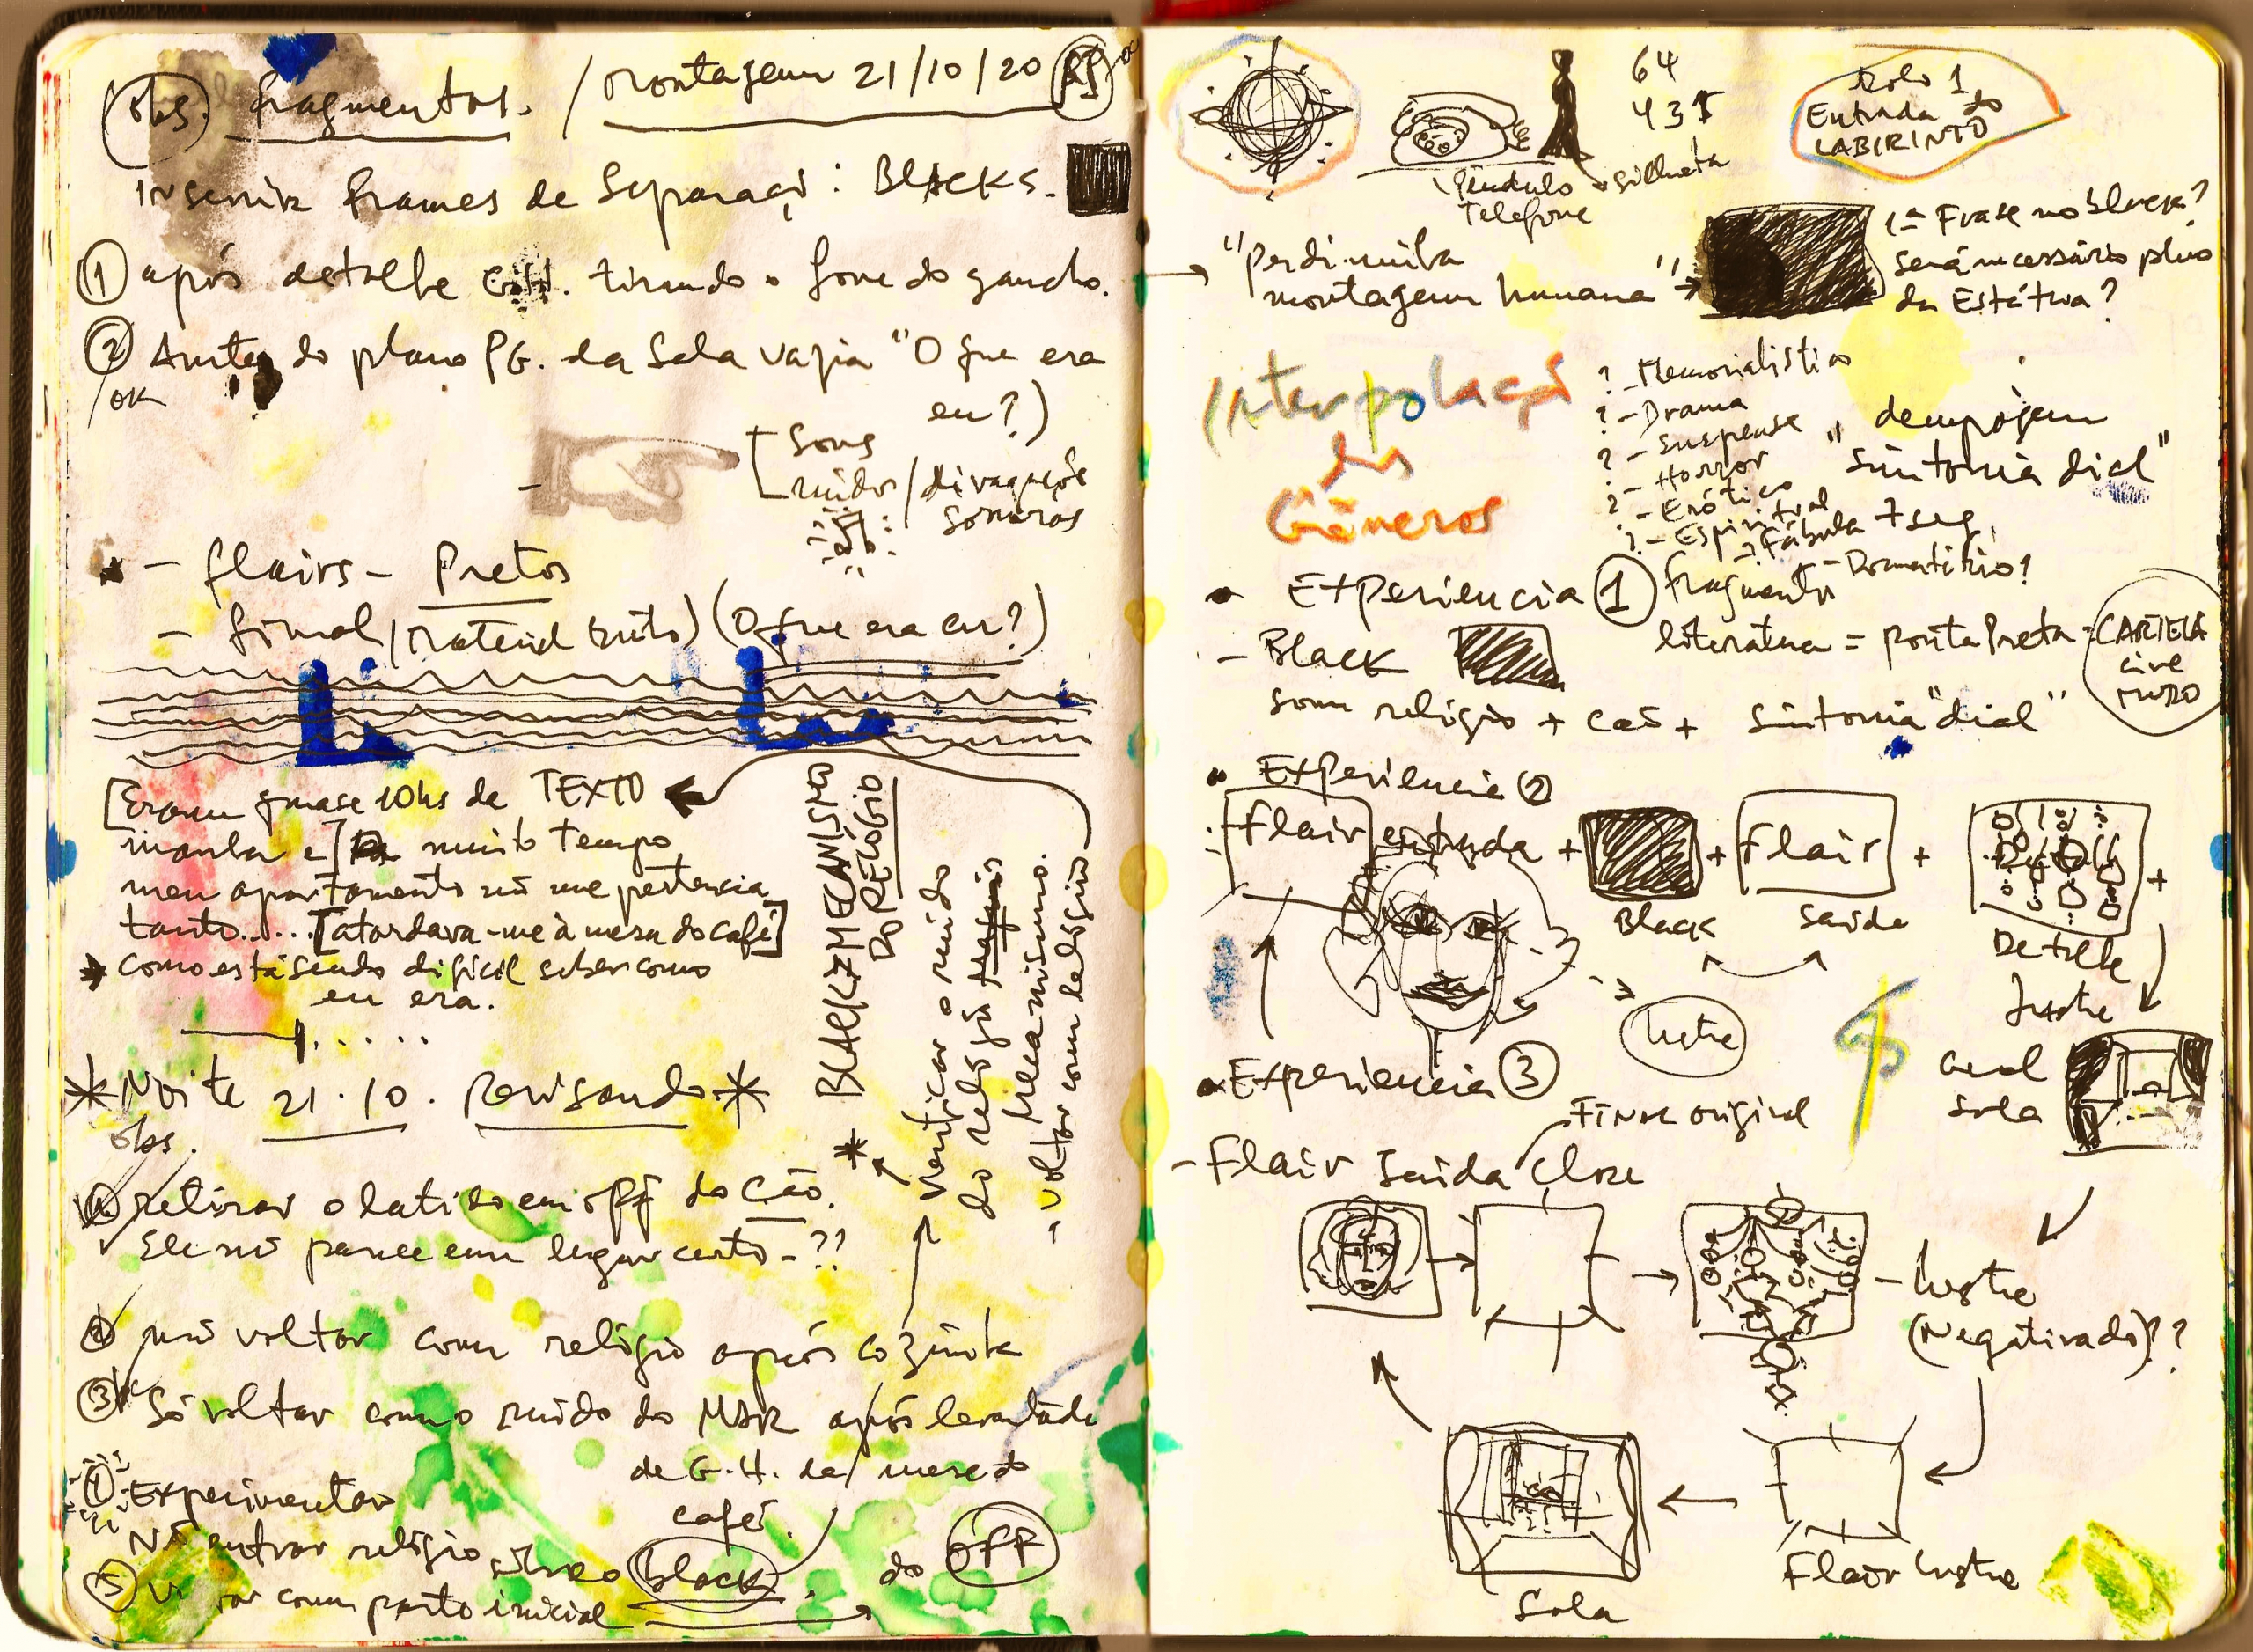 obs. fragmentos. / Montagem 21/10/20
Inserir frames de Separaçã: BLACKS.
1 após detalhe G.H. tirando o fone do gancho.
2 Antes do plano PG. da Sala vazia "O que era
/OK
eu?)
Sons
ruídos/divagações
sonoras
- flairs - Pretos
- final (Material bruto) (O que era eu?)
[Eram quase 10hs da TEXTO
manhã e] há muito tempo
meu apartamento nã me pertencia
tanto..... [atardava-me à mesa do café]
como está sendo difícil saber como
eu era.
* Noite 21.10. Revisando *
obs.
1 retirar o latido em off do Cão.
Ele nã parece em lugar certo - ??
2 nã voltar com relógio após cozinha
3 Só voltar com o ruído do MAR após levantada
de G.H. da mesa do
café.
4 Experimentar
Nã entrar relógio sobre o black.
5 com parte inicial do OFF
* BLACKZ MECANISMO
DO RELÓGIO
Verificar o ruído
do relógio
Mecanismo.
- voltar com relógio
64
431
Rolo 1
Entrada do
LABIRINTO
Pêndulo silhueta
Telefone
"perdi minha
montagem humana"
1ª Frase no black?
Será necessário plano
da Estátua?
Interpolaçã
dos
Gêneros
? - Memorialístico
? - Drama
? - Suspense
? - Horror
? - Erótico
? - Espiritual
? Fábula
- Romantismo?
"sintonia dial"
7 seg.
Experiencia 1 fragmento
literatura = ponta Preta - CARTELA
cine
MUDO
- Black
som relógio + cão + sintonia "dial"
Experiencia 2
Flair entrada + + Flair + +
Black Saída
Detalhe
lustre
lustre
Geral
Sala
Experiencia 3
Final original
- Flair Saída Close
- lustre
(Negativado)??
Flair lustre
Sala